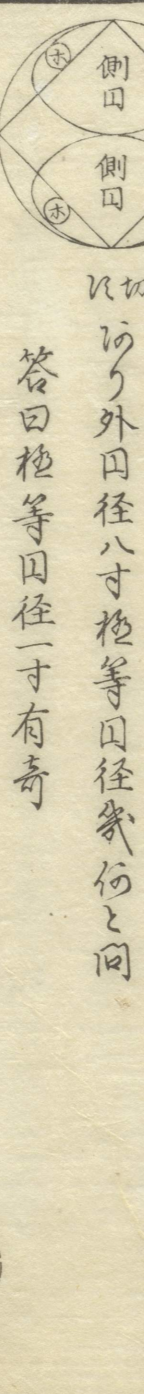 側円
側円
ホ
ホ
切
アリ外円径八寸極等円径幾何と問
答曰極等円径一寸有奇